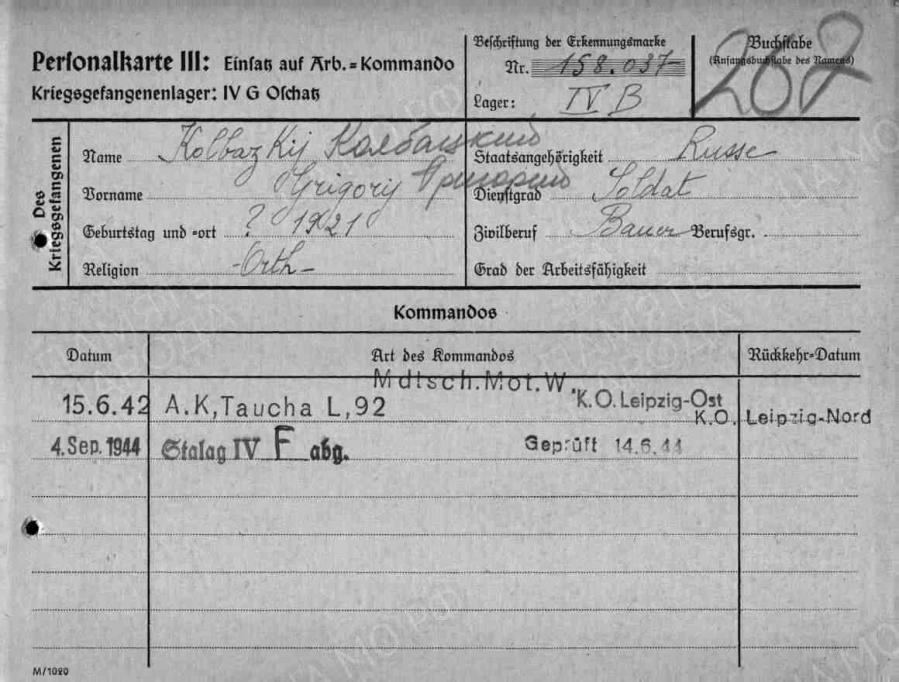 Personalkarte III: Einsatz auf Arb.=Kommando
Kriegsgefangenenlager: IV G Oschatz
Beschriftung der Erkennungsmarke
Nr. 158.037
Lager: IV B
Buchstabe
(Anfangsbuchstabe des Namens)
207
Des Kriegsgefangenen
Name Kolbazkij Колбацкий
Vorname Grigorij Григорий
Geburtstag und =ort ? 1921
Religion Orth
Staatsangehörigkeit Russe
Dienstgrad Soldat
Zivilberuf Bauer Berufsgr.
Grad der Arbeitsfähigkeit
Kommandos
Datum Art des Kommandos Rückkehr=Datum
Mdtsch.Mot.W.
15.6.42 A.K,Taucha L,92 K.O.Leipzig-Ost
K.O. Leipzig-Nord
4.Sep.1944 Stalag IV F abg. Geprüft 14.6.44
M/1020